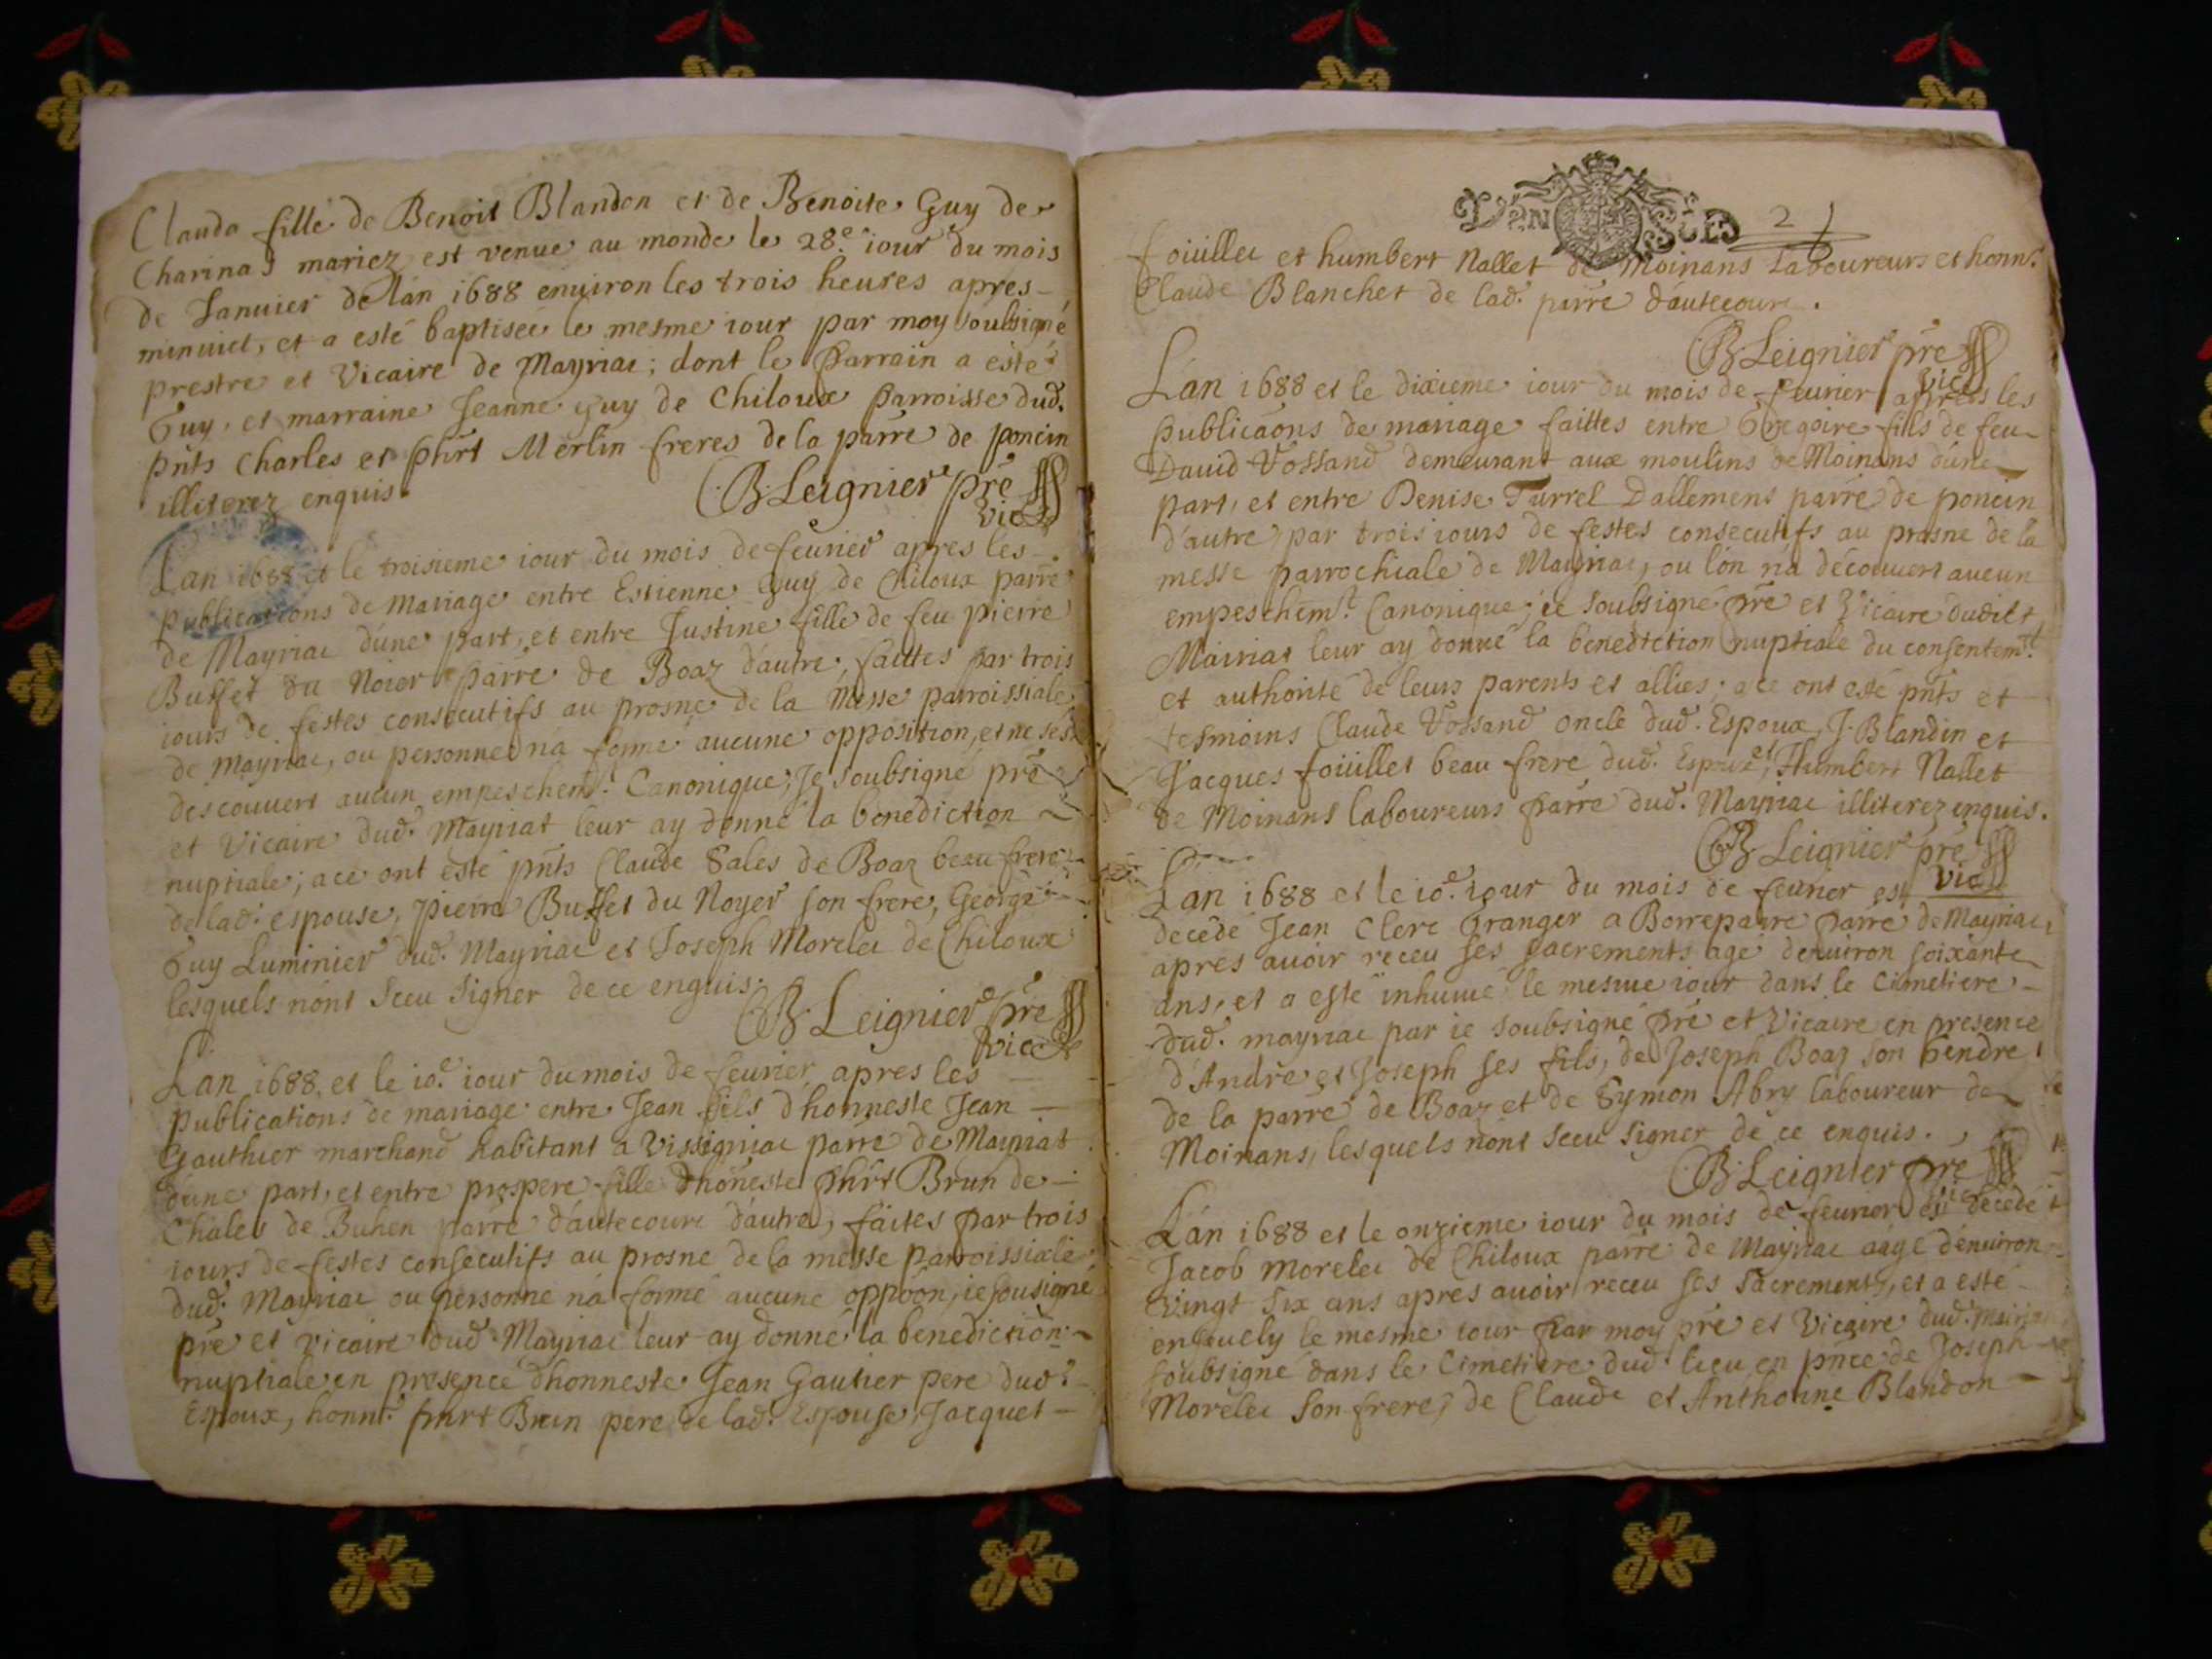 Clauda fille de Benoit Blandon et de Benoite Guy de
Charinas mariez est venue au monde le 28e. iour du mois
de Ianuier de lán 1688 enuiron les trois heures apres-
minuict, et a esté baptiseé le mesme iour par moy soubsigné
prestre et Vicaire de Mayriac; dont le Parrain a esté
Guy, et marraine Jeanne Guy de Chiloux Parroisse dud.
pnts Charles et phirt Merlin freres de la parre de poncin
illiterez enquis.
B. Leignier pre
Vic
Lan 1688 et le troisieme iour du mois de feurier apres les
publications de Mariage entre Estienne Guy de Chiloux parre
de Mayriac dúne part, et entre Justine fille de feu pierre
Buffet du Noier parre de Boaz dáutre, faittes par trois
iours de festes consecutifs au prosne de la Messe parroissiale
de Mayriac, ou personne ná formé aucune opposition, et ne sést
descouuert aucun empeschemt. Canonique; Je soubsigné pre
et Vicaire dud. Mayriat leur ay donné la benediction
nuptiale; a ce ont esté pnts Claude Sales de Boaz beau frere
de lad. espouse, pierre Buffet du Noyer son frere, George
Guy Luminier dud. Mayriac et Joseph Morelet de Chiloux
lesquels nónt sceu signer de ce enquis.
B. Leignier pre
Vic
Lán 1688. et le 10e. iour du mois de feurier apres les
publications de mariage entre Jean fils dhonneste Jean
Gauthier marchand habitant a Vissigniac parre de Mayriat
dúne part, et entre prospere fille dhoneste phirt Brun de
Chales de Buhen parre dáutecourt dáutre, faites par trois
iours de festes consecutifs au prosne de la messe parroissiale
dud. Mayriac ou personne ná formé aucune oppoon, ie sousigné
pre et vicaire dud. Mayriac leur ay donné la benediction
nuptiale en presence dhonneste Jean Gautier pere dud.
Espoux, honnt. phirt Brun pere de lad. Espouse, Jacques
2
foiüillet et humbert Nallet de Moinans Laboureurs et honnt.
Claude Blanchet de lad. parre dáutecourt.
B. Leignier pre
Vic
Lán 1688 et le dixieme iour du mois de feurier apres les
publicaons de mariage faittes entre Gregoire fils de feu
Dauid Vossand demeurant aux moulins de Moinans dúne
part, et entre Denise Turrel Dallemens parre de poncin
d'autre, par trois iours de festes consecutifs au prosne de la
messe parrochiale de Mayriac, ou lón ná découuert aucun
empeschemt. Canonique; ie soubsigné pre et Vicaire dudit
Mairiat leur ay donné la benediction nuptiale du consentemt.
et authorité de leurs parents et allies; a ce ont esté pnts et
tesmoins Claude Vossand oncle dud. Espoux, J. Blandin et
Jacques foiüillet beau frere dud. Espoux, et Humbert Nallet
de Moinans laboureurs parre dud. Mayriac illiterez enquis.
B. Leignier pre
Vic
Lan 1688 et le 10e. iour du mois de feurier est
decedé Jean Clerc Granger a Borrepaire parre de Mayriac
apres auoir receu ses sacrements agé denuiron soixante
ans, et a esté inhumé le mesme iour dans le Cimetiere
dud. mayriac par ie soubsigné pre et Vicaire en presence
d'André et Joseph ses fils, de Joseph Boaz son Gendre
de la parre de Boaz et de Symon Abry laboureur de
Moinans, lesquels nónt sceu signer de ce enquis.
B. Leignier pre
Vic
Lán 1688 et le onzieme iour du mois de feurier est decedé
Jacob Morelet de Chiloux parre de Mayriac aagé dénuiron
Vingt six ans apres auoir receu ses sacrements, et a esté
enseuely le mesme iour par moy pre et Vicaire dud. Mairiac
soubsigné dans le Cimetiere dud. lieu en pnce de Joseph
Morelet son frere, de Claude et Anthoine Blandon